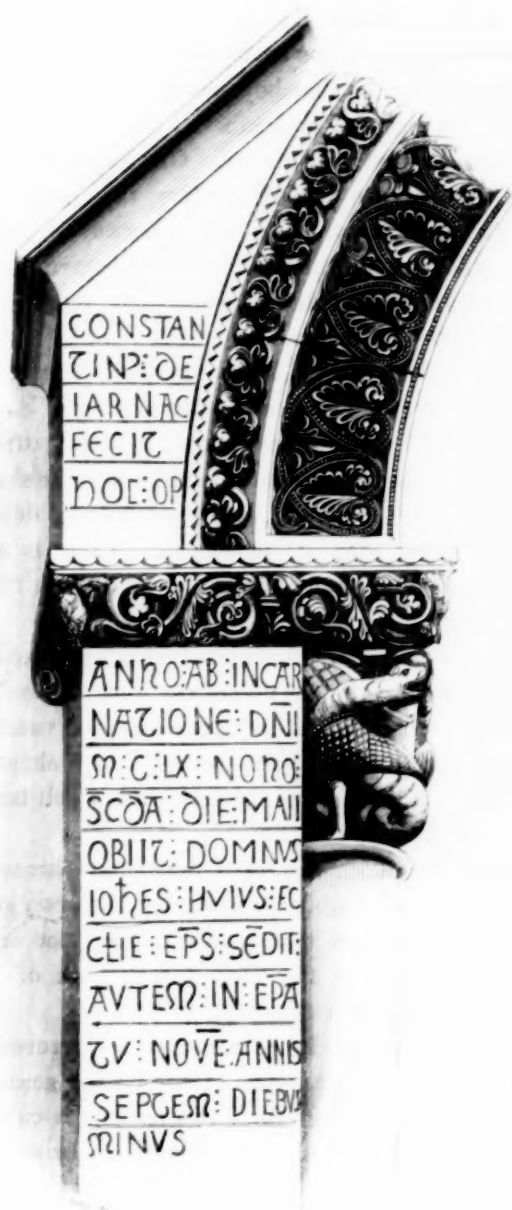 CONSTAN
TINꝰ⁝ DE
IARNAC
FECIT
hOC⁝ OP
ANNO⁝ AB⁝ INCAR
NATIONE⁝ DN̄I
M⁝ C⁝ LX⁝ NONO⁝
S̄CD̄A⁝ DIE⁝ MAII
OBIIT⁝ DOMNVS
IOħES⁝ HVIVS⁝ EC
CŁIE⁝ EP̄S⁝ SĒDIT⁝
AVTEM⁝ IN⁝ EP̄A
TV⁝ NOVĒ⁝ ANNIS
SEPTEM⁝ DIEBVS
MINVS